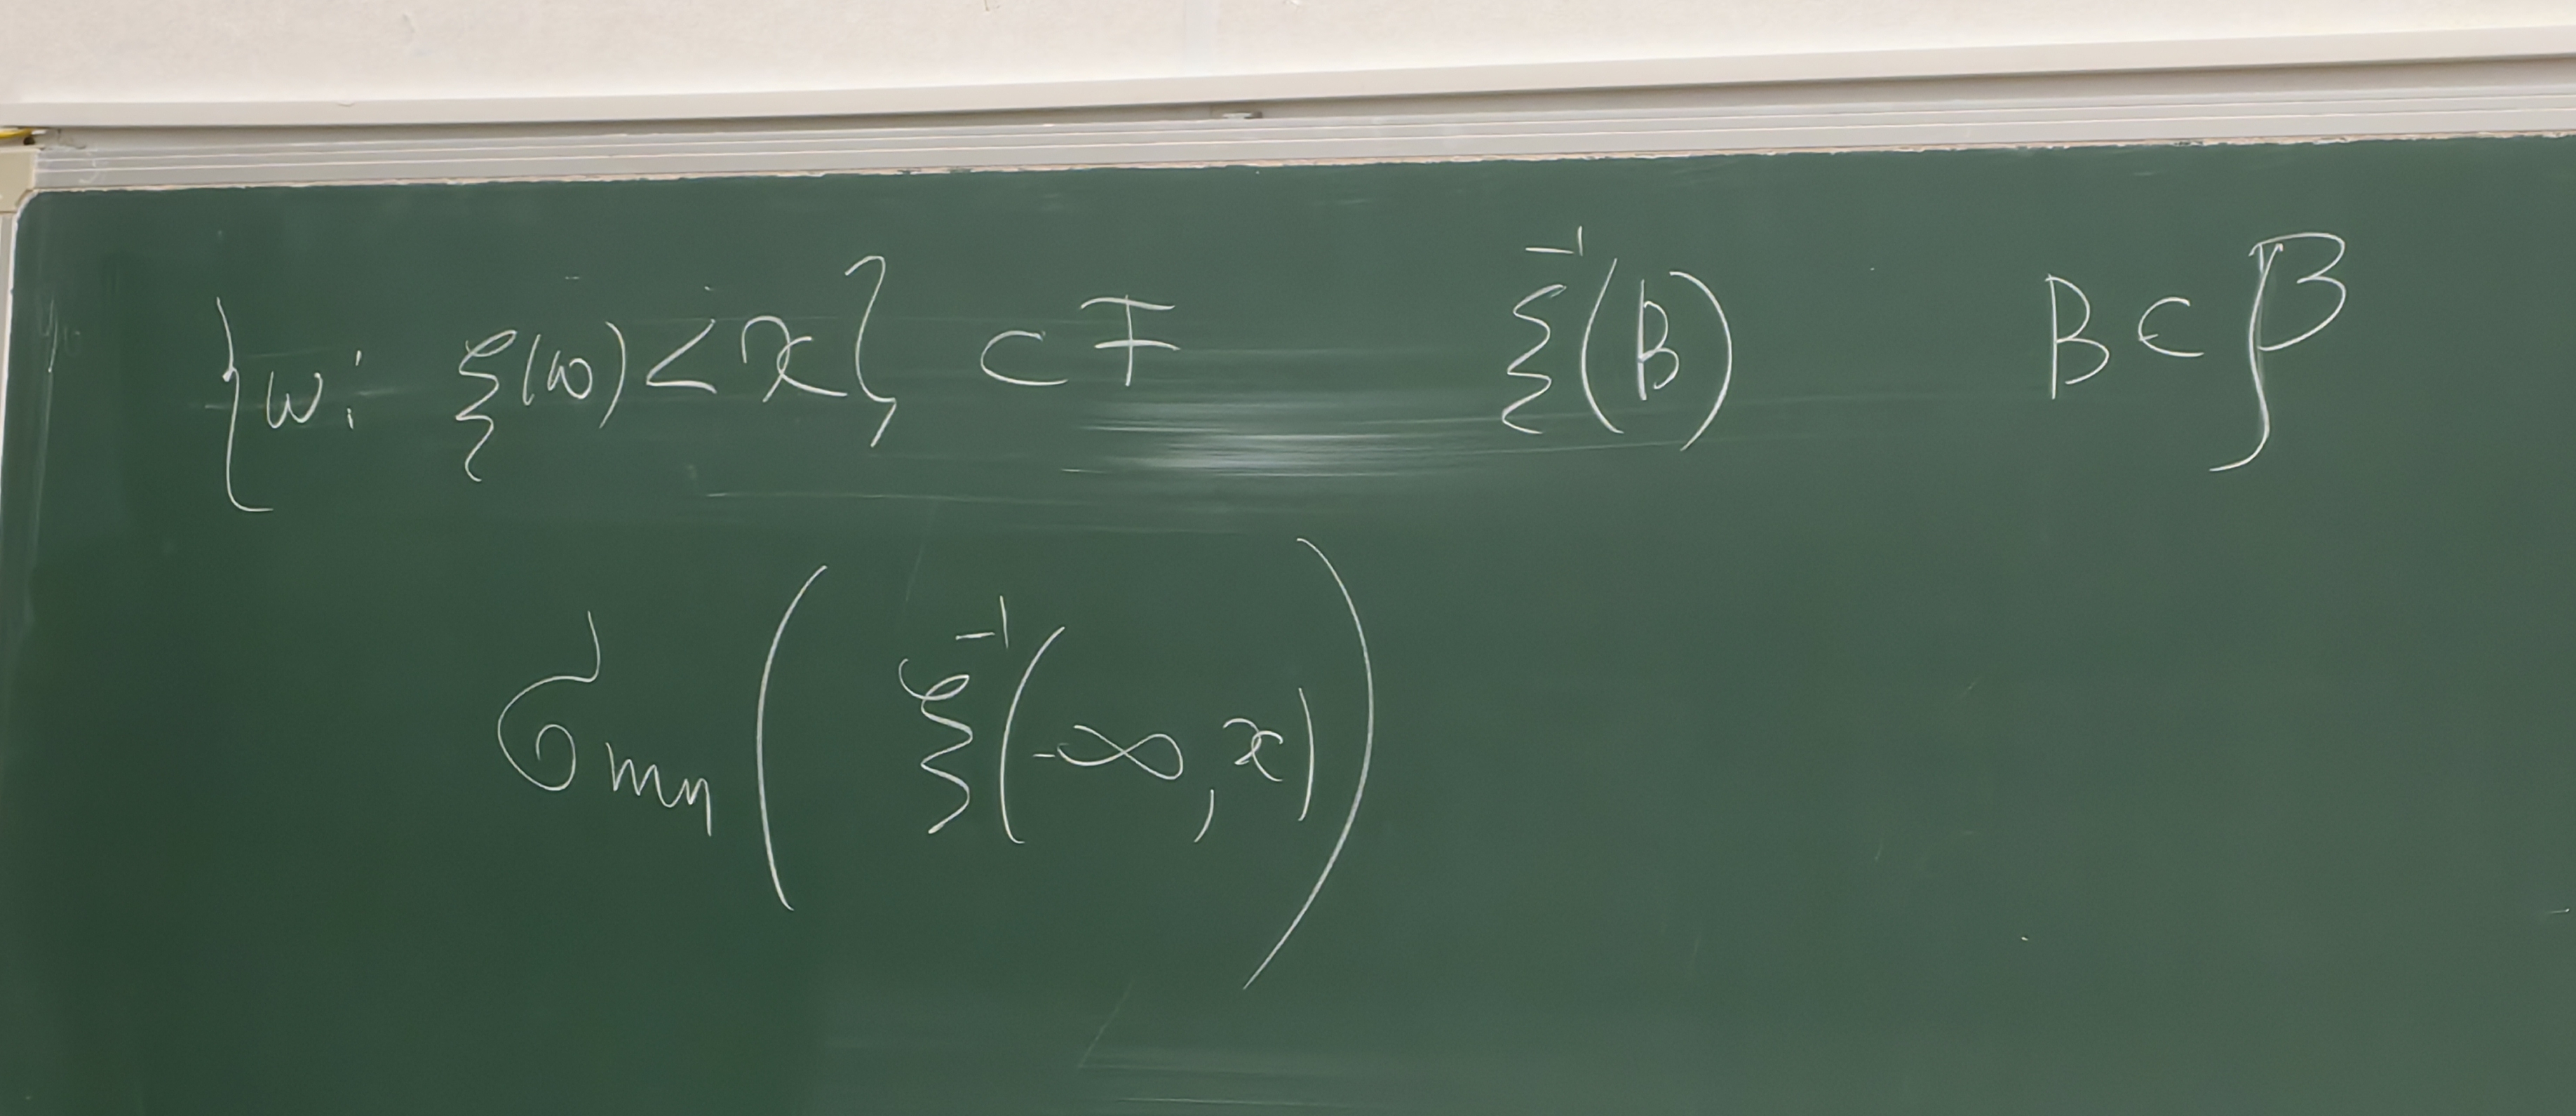 {ω: ξ(ω) < x} ⊂ F ξ⁻¹(B) B ⊂ β
σmin(ξ⁻¹(-∞, x))